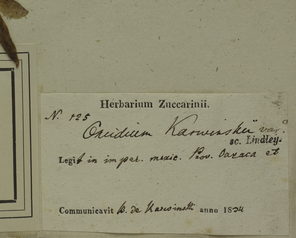 Herbarium Zuccarinii.
N. 125
Oncidium Karwinskii var.
sc. Lindley.
Legit in imper. mexic. Prov. Oaxaca et
Communicavit B. de Karwinski anno 1834